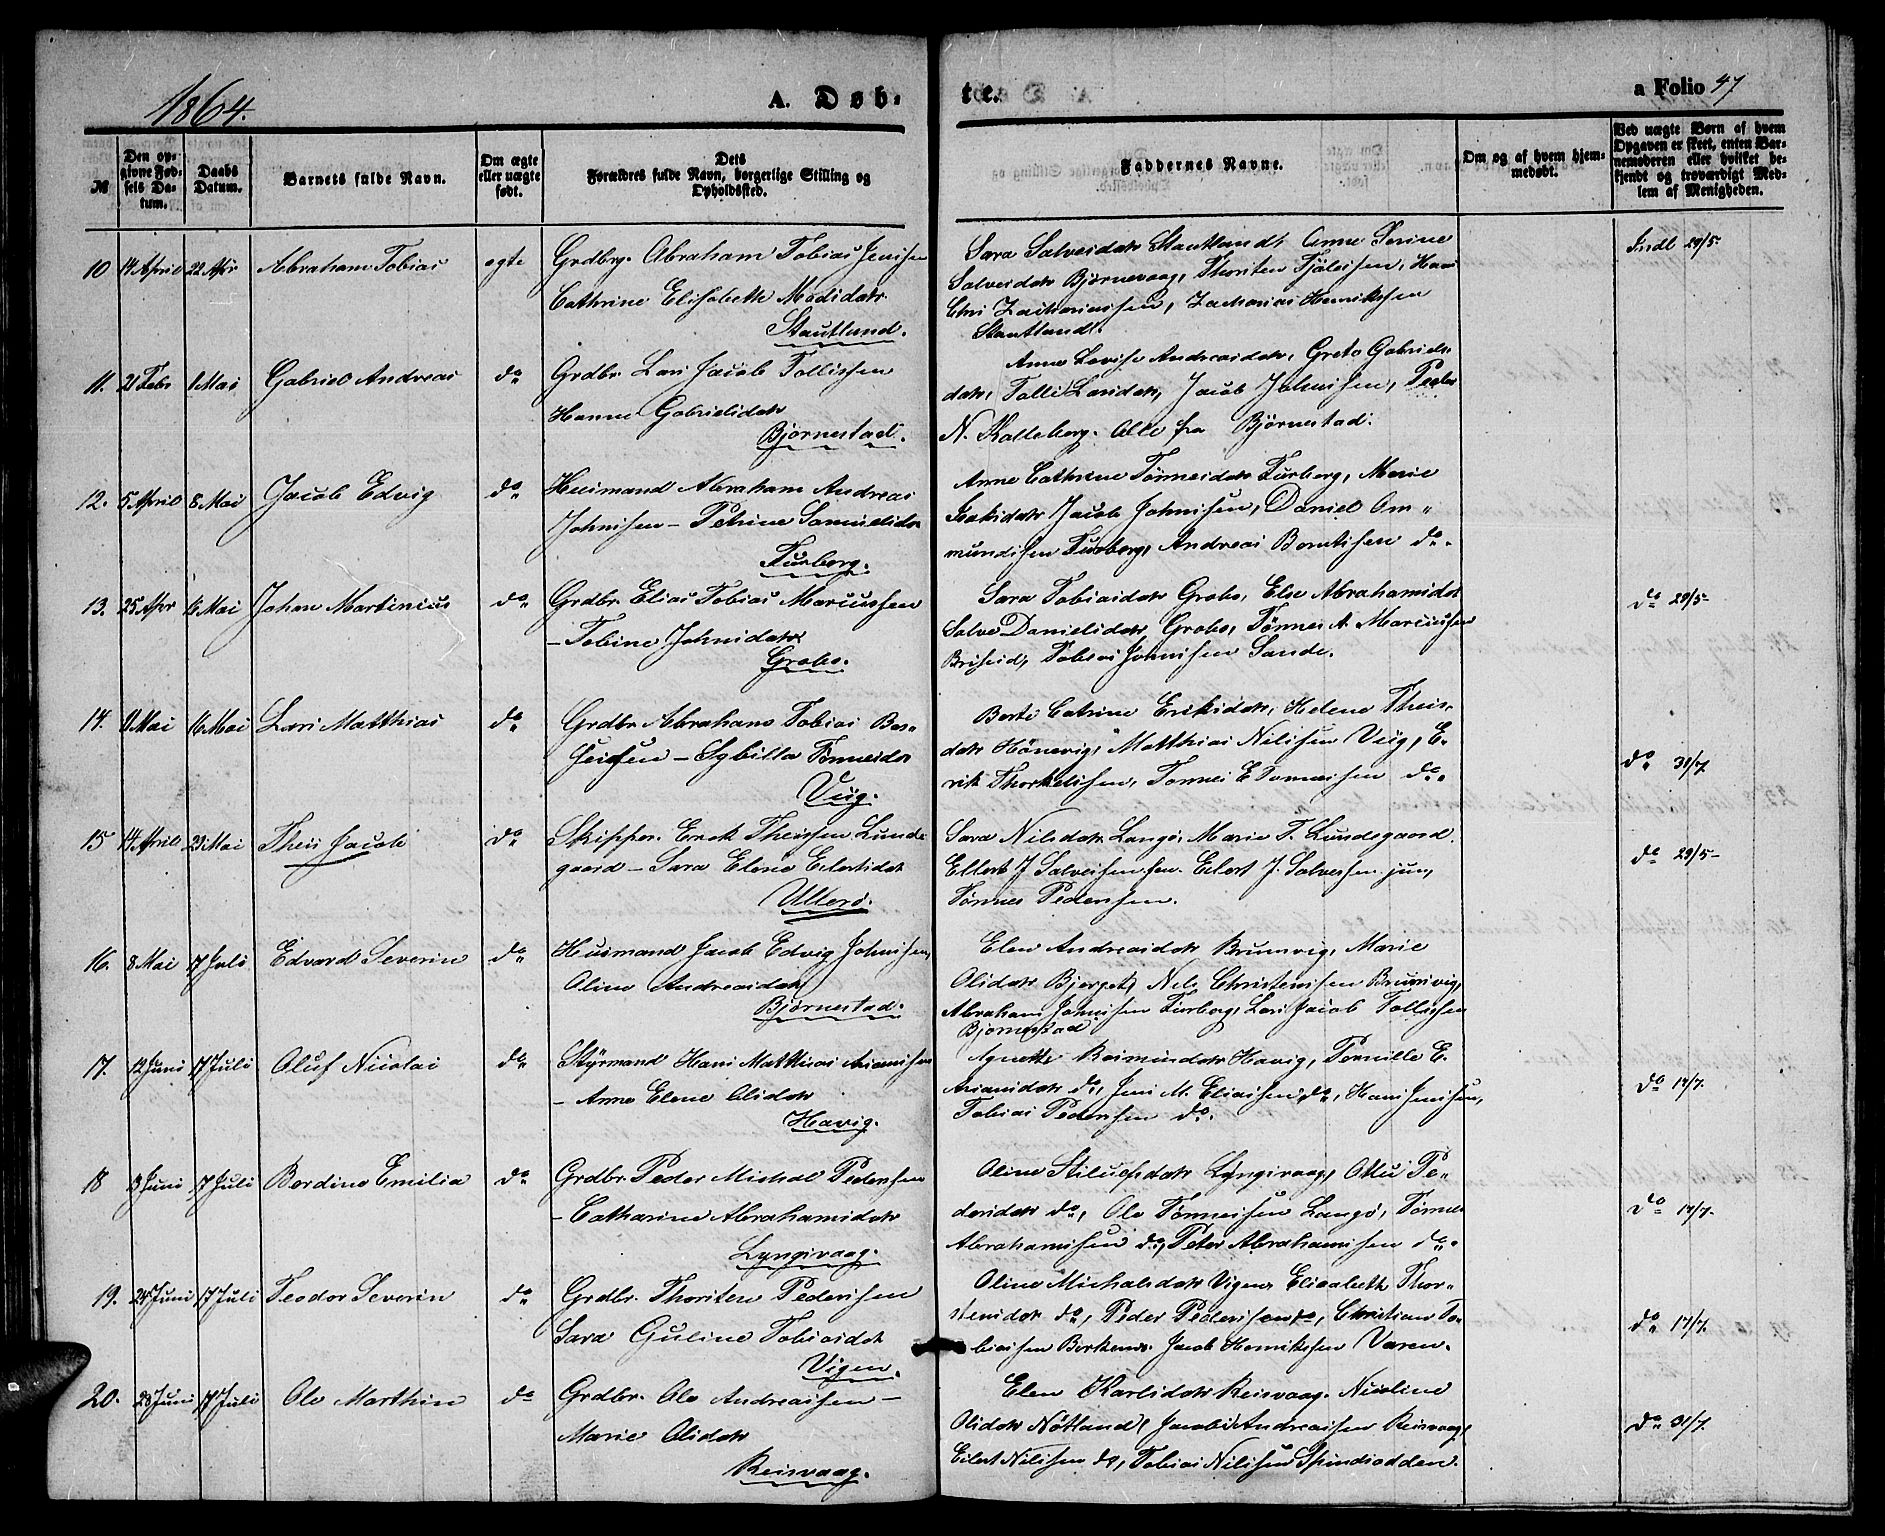 1864.
A. Døb-
te.
a Folio 47
№
Den op-
givne Fød-
sels Da-
tum.
Daabs
Datum.
Barnets fulde Navn.
Om ægte
eller uægte
født.
Dets
Forældres fulde Navn, borgerlige Stilling og
Opholdssted.
Faddernes Navne.
Om og af hvem hjem-
medøbt.
Ved uægte Børn af hvem
Opgaven er skeet, enten Bar-
nemoderen eller hvilket be-
kjendt og troværdigt Med-
lem af Menigheden.
10 14 April 22 Apr Abraham Tobias egte Grdbrg. Abraham Tobias Jenssen
Cathrine Elisabeth Madsdatr
Stautland.
Sara Salvesdatr Stautland, Anne Serine
Salvesdatr Björnevaag, Thorsten Fjeldsen, Hans
Chri Zachariassen, Zacharias Henrikssen
Stautland.
Indl 29/5
11. 21 Febr 1 Mai Gabriel Andreas do Grdbr. Lars Jacob Tollissen
Hanne Gabrielsdatr
Bjørnestad.
Anne Lovise Andreasdatr, Grete Gabriels-
datr, Tolli Larsdatr, Jacob Johnsen, Peder
N. Kalleberg. Alle fra Bjørnestad.
12. 5 April 8 Mai Jacob Edvig do Huusmand Abraham Andreas
Johnsen - Petrine Samuelsdr
Furberg.
Anne Cathrine Tönnesdatr Furberg, Marie
Isaksdatr, Jacob Johnsen, Daniel Om-
mundsen Furberg, Andreas Berntsen do.
13. 25 Apr 16 Mai Johan Martinius do Grdbr. Elias Tobias Marcussen
- Tobine Johnsdatr
Grobo.
Sara Tobiasdatr Grobo, Else Abrahamsdtr
Salve Danielsdatr Grobo, Tönnes A. Marcussen
Briseid, Tobias Johnsen Sande.
do 29/5
14. 11 Mai 16 Mai Lars Matthias do Grdbr Abraham Tobias Ber-
- Sybilla Tönnesdr
Viig.
Berte Catrine Eriksdatr, Helene Theis-
datr Hönevig, Matthias Nilssen Viig, E-
rik Thorkelssen, Tönnes E Tönnessen do.
do 31/7.
15 14 April 23 Mai Theis Jacob do Skipper. Erik Theissen Lunde-
gaard - Sara Elene Eilertsdatr
Ullerø.
Sara Nilsdatr Langø, Marie T. Lundegaard.
Ellert J Salvesen sen. Eilert J. Salvesen jun,
Tönnes Pedersen.
do 29/5
16. 8 Mai 17 Juli Edvard Severin do Huusmand Jacob Edvig Johnsen,
Oline Andreasdatr
Bjørnestad.
Elen Andreasdatr Brunvig, Marie
Olsdatr Bjerget, Nils Christenssen Brunvig,
Abraham Johnsen Furberg, Lars Jacob Tollissen
Bjørnestad
17. 12 Juni 17 Juli Oluf Nicolai do Styrmand Hans Matthias Ariansen
- Anne Elene Olsdatr
Havig.
Agnethe Reimundsdatr Havig, Pernille E.
Ariansdatr do, Jens M. Eliassen, do, Hans Jenssen,
Tobias Pedersen do.
do 17/7.
18 3 Juni 17 Juli Berdine Emilia do Grdbr. Peder Michal Pedersen
- Catharine Abrahamsdatr
Lyngsvaag.
Oline Lyngsvaag, Pe-
dersdatr do, Ole Tönnessen Langø, Tönnes
Abrahamssen do, Peter Abrahamssen do.
do 17/7.
19. 24 Juni 17 Juli Teodor Severin do Grdbr. Thorsten Pederssen
Sara Guline Tobiasdtr
Vigen.
Oline Michalsdatr Vigen, Elisabeth Thor-
stensdatr do, Peder Pederssen do, Christian To-
biassen Birkenes. Jacob Henrikssen Varen.
do 17/7.
20. 28 Juni 17 Juli Ole Marthin do Grdbr. Ole Andreassen -
Marie Olsdatr
Reisvaag.
Elen Karlsdatr Reisvaag, Nicoline
Olsdatr Nötland, Jacob Andreassen Reisvaag,
Eilert Nilssen do, Tobias Nilssen Spindsodden.
do 31/7.